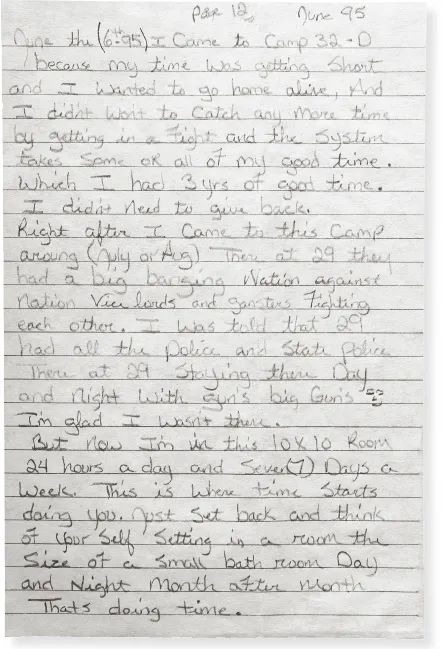 Page 12 June 95
June the (6th 95) I Came to Camp 32-D
because my time was getting Short
and I wanted to go home alive, And
I didnt wont to Catch any more time
by getting in a fight and the System
takes Some or all of my good time.
Which I had 3yrs of good time.
I didnt need to give back.
Right after I Came to this Camp
aroung (July or Aug) Ther at 29 they
had a big banging Nation against
Nation Vice lords and gansters Fighting
each other. I was told that 29
had all the police and State police
There at 29 Staying there Day
and night With Gun's big Gun's
I'm glad I wasnt there.
But now I'm in this 10x10 Room
24 hours a day and Seven(7) Days a
Week. This is where time Starts
doing you. Just Set back and think
of your Self Setting in a room the
Size of a Small bath room Day
and Night Month after Month
Thats doing time.